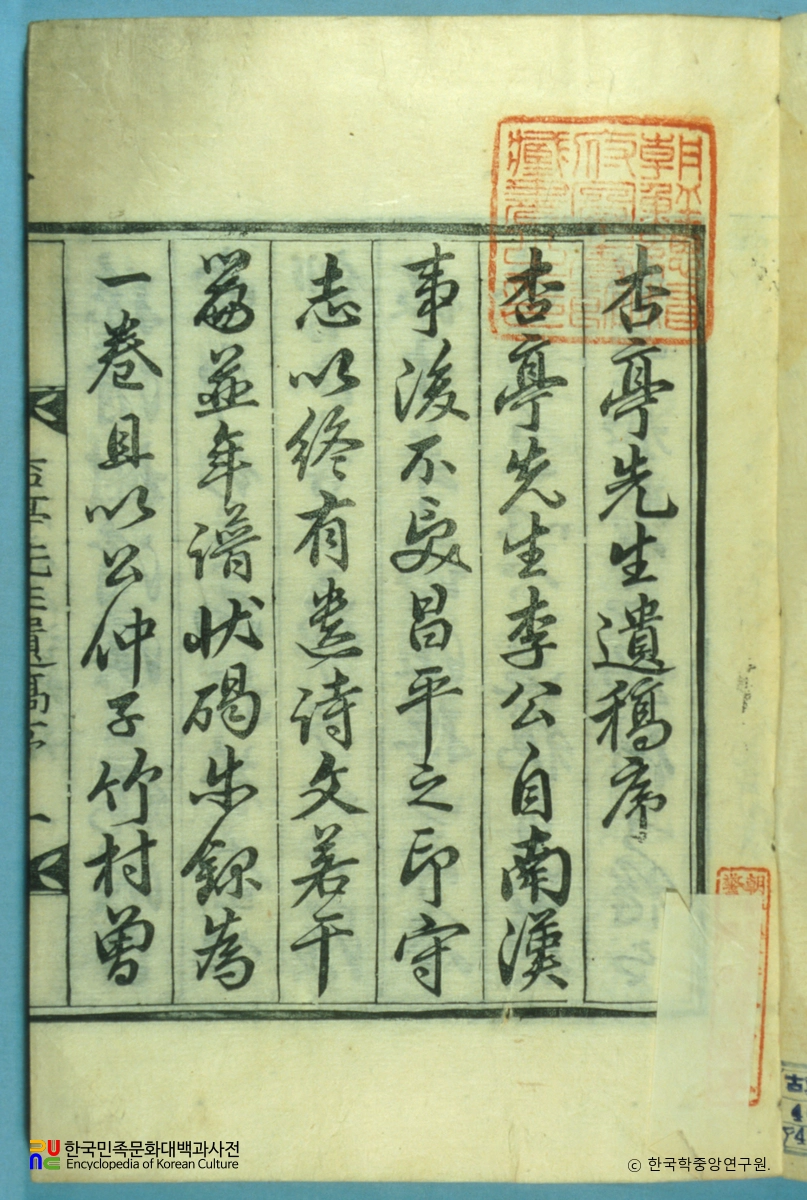 朝鮮總督
府圖書館
藏書之印
杏亭先生遺稿序
杏亭先生李公自南漢
事後不受昌平之印守
志以終有遺詩文若干
篇並年譜狀碣錄為
一卷且以公仲子竹村曾
杏亭先生遺稿序 一
한국민족문화대백과사전
Encyclopedia of Korean Culture
ⓒ 한국학중앙연구원.